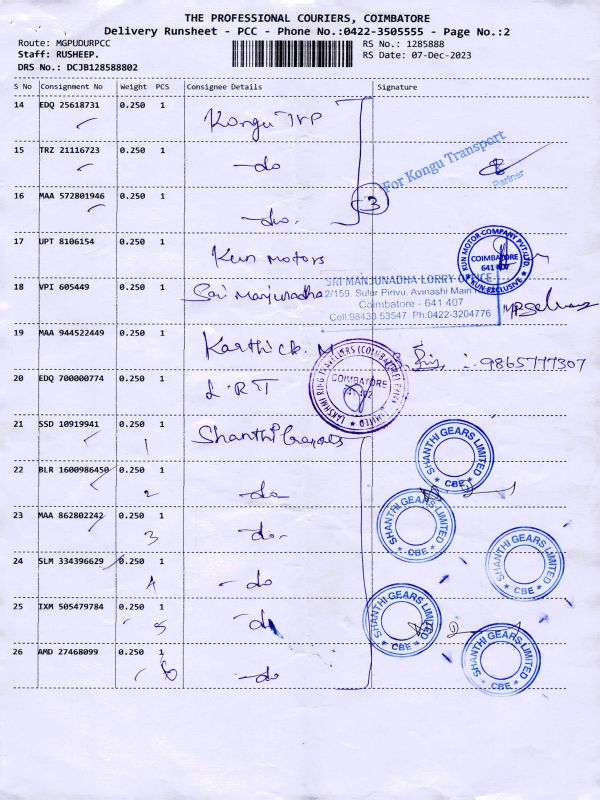 THE PROFESSIONAL COURIERS, COIMBATORE
Delivery Runsheet - PCC - Phone No.:0422-3505555 - Page No.:2
Route: MGPUDURPCC
RS No.: 1285888
Staff: RUSHEEP.
RS Date: 07-Dec-2023
DRS No.: DCJB128588802
S No Consignment No Weight PCS Consignee Details Signature
14 EDQ 25618731 0.250 1 Kongu TVP
15 TRZ 21116723 0.250 1 -do
For Kongu Transport
Partner
16 MAA 572801946 0.250 1 -do.
3
17 UPT 8106154 0.250 1 Kun Motors
KUN MOTOR COMPANY PVT LTD.
COIMBATORE
641 407
KUN-EXCLUSIVE
18 VPI 605449 0.250 1 Sai Manjunadha
SRI MANJUNADHA LORRY OFFICE
2/159, Sulur Pirivu, Avinashi Main
Coimbatore - 641 407
Cell:98433 53547 Ph:0422-3204776
19 MAA 944522449 0.250 1 Karthick. M
9865777307
20 EDQ 700000774 0.250 1 L.R.T
COIMBATORE
21 SSD 10919941 0.250 1 Shanthi Gears
1
SHANTHI GEARS LIMITED
CBE
22 BLR 1600986450 0.250 1 -do-
2
23 MAA 862802242 0.250 1 -do-
3
SHANTHI GEARS LIMITED
CBE
24 SLM 334396629 0.250 1 -do
4
SHANTHI GEARS LIMITED
CBE
25 IXM 505479784 0.250 1 -do
5
SHANTHI GEARS LIMITED
CBE
26 AMD 27468099 0.250 1 -do-
6
SHANTHI GEARS LIMITED
CBE